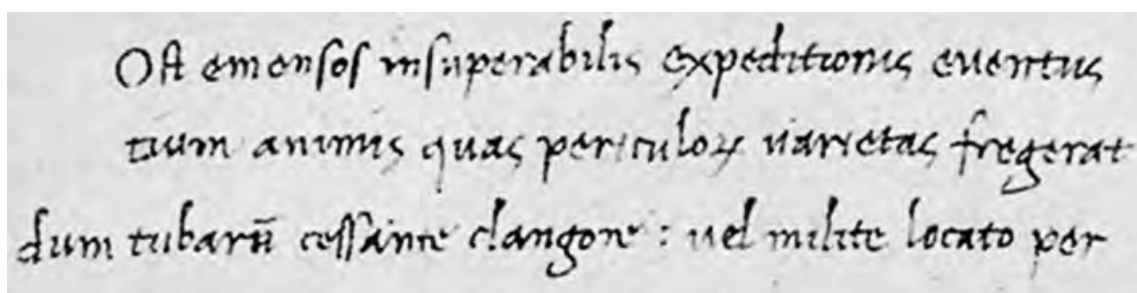 Oſt emenſoſ inſuperabilis expeditionis euentus
tium animis quas periculoꝝ uarietas fregerat
dum tubarū ceſſante clangore : uel milite locato per